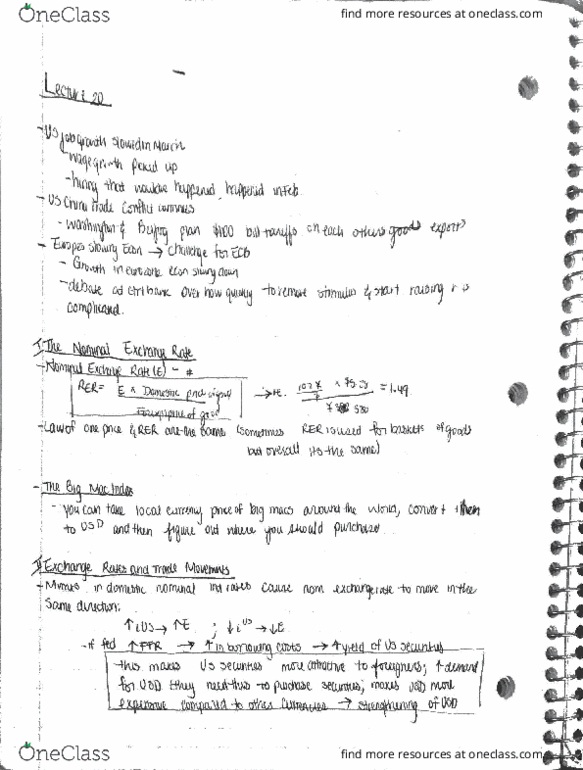 OneClass
find more resources at oneclass.com
Lecture 20
- US job growth slowed in March
- wage growth picked up
- hiring that would've happened, happened in Feb.
- US China Trade Conflict continues
- Washington & Beijing plan $100 bill tariffs on each others goods exports
- Europes slowing Econ → Challenge for ECB
- Growth in eurozone econ slowing down
- debate at ctrl bank over how quickly to remove stimulus & start raising r is
complicated.
I. The Nominal Exchange Rate
- Nominal Exchange Rate (E) - #
RER = E x Domestic price of good
Foreign price of good
= 1.49
- Law of one price & RER are the same (sometimes RER is used for baskets of goods
but overall its the same)
- The Big Mac Index
- you can take local currency price of big macs around the world, convert them
to USD and then figure out where you should purchase
II Exchange Rates and Trade Movements
- Mvmts in domestic nominal int rates cause nom exchange rate to move in the
same direction:
↑iUS → ↑E ; ↓iUS → ↓E
- if fed ↑FFR → ↑ in borrowing costs → ↑ yield of US securities
this makes US securities more attractive to foreigners; ↑ demand
for USD (they need this to purchase securities; makes USD more
expensive compared to other currencies → strengthening of USD
OneClass
find more resources at oneclass.com